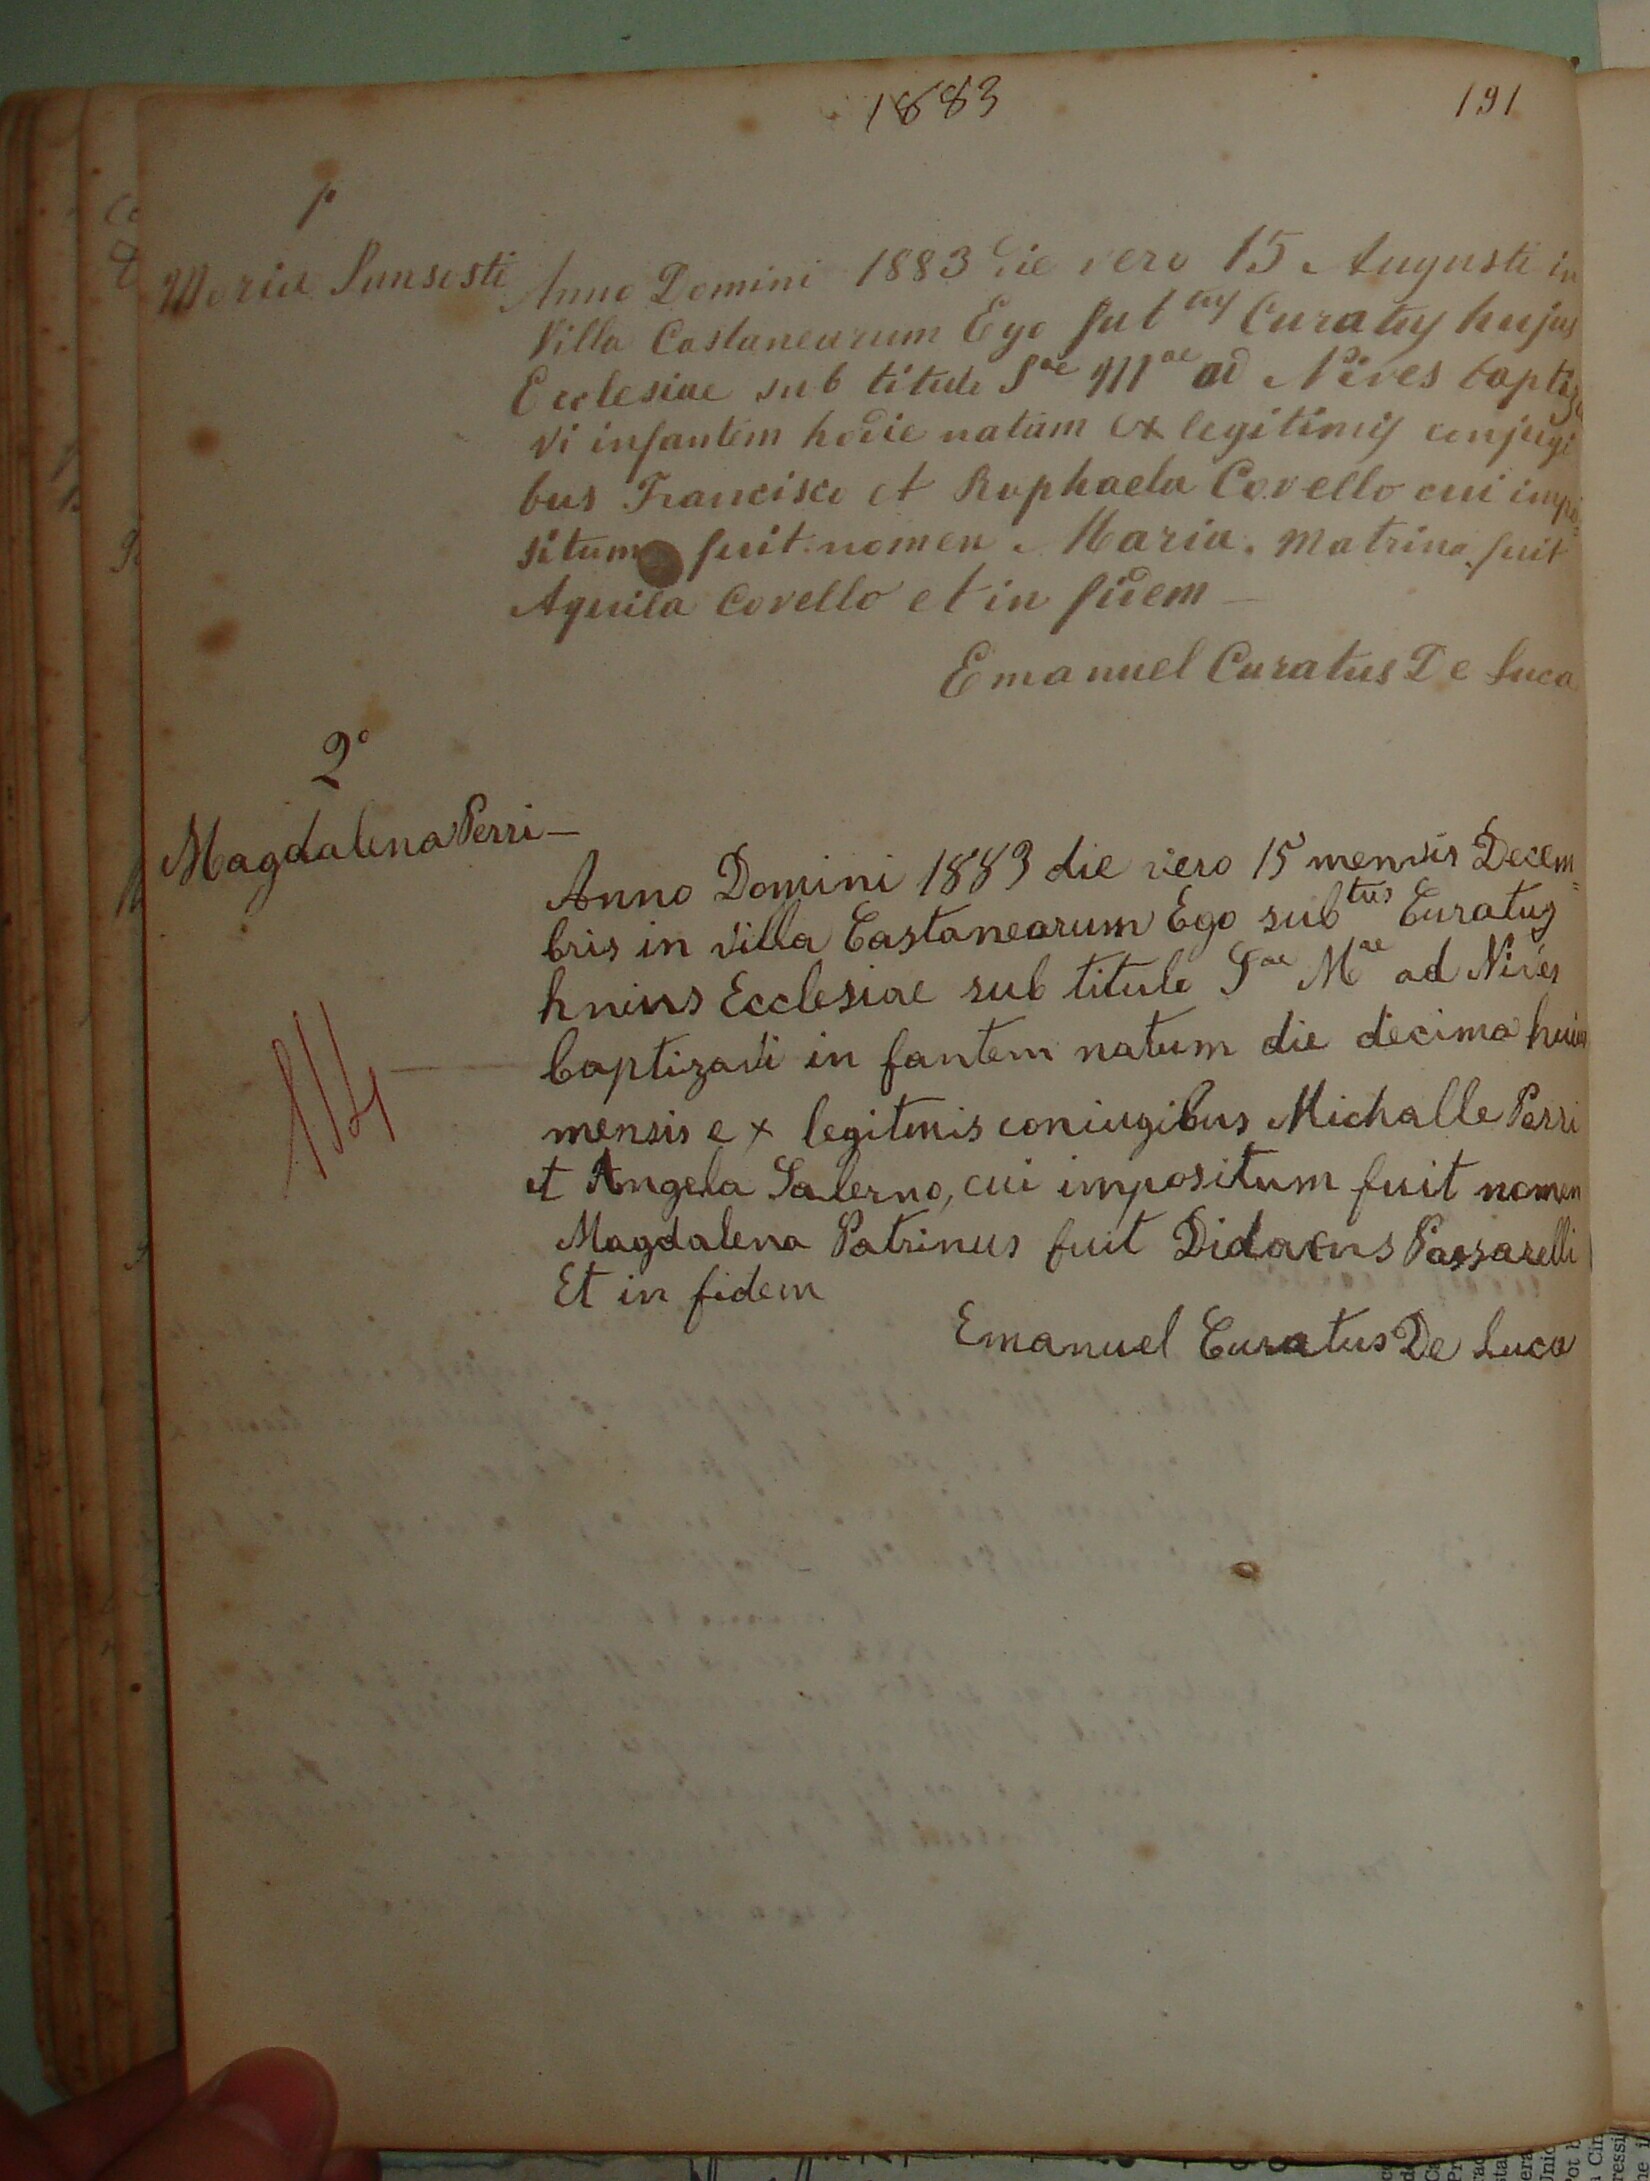 1883
191
1º
Maria Sansosti
Anno Domini 1883 die vero 15 Augusti in
Villa Castanearum Ego subtus Curatus hujus
Ecclesiae sub titulo Sae Mae ad Nives baptiza
vi infantem hodie natam ex legitimis conjugi
bus Francisco et Raphaela Covello cui impo=
situm fuit nomen Maria. Matrina fuit
Aquila Covello et in fidem —
Emanuel Curatus De Luca
2º
Magdalena Perri —
Anno Domini 1883 die vero 15 mensis Decem=
bris in villa Castanearum Ego subtus Curatus
huius Ecclesiae sub titulo Sae Mae ad Nives
baptizavi in fantem natum die decima huius
mensis ex legitimis coniugibus Michalle Perri
et Angela Salerno, cui impositum fuit nomen
Magdalena Patrinus fuit Didacus Passarelli
Et in fidem
Emanuel Curatus De Luca